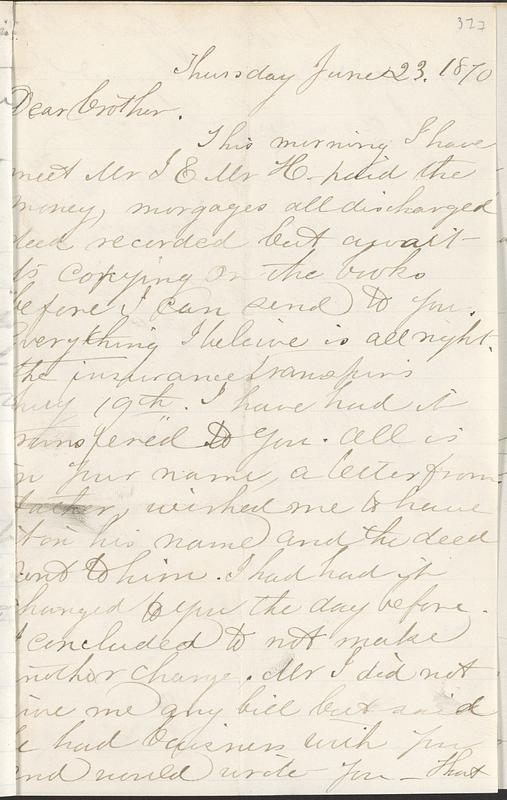 323
Thursday June 23. 1870
Dear Brother.
This morning I have
meet Mr I E Mr H- paid the
money, morgages all discharged
deed recorded but await-
its copying on the books
before I can send to you.
Everything I beleive is all right.
the insurance transpiris
19th. I have had it
transfered to you. all is
in your name, a letter from
father, wished me to have
it in his name and the deed
sent to him. I had had it
changed to you the day before.
I concluded to not make
another change. Mr I did not
give me any bill but said
he had buisness with you
and would write you - That